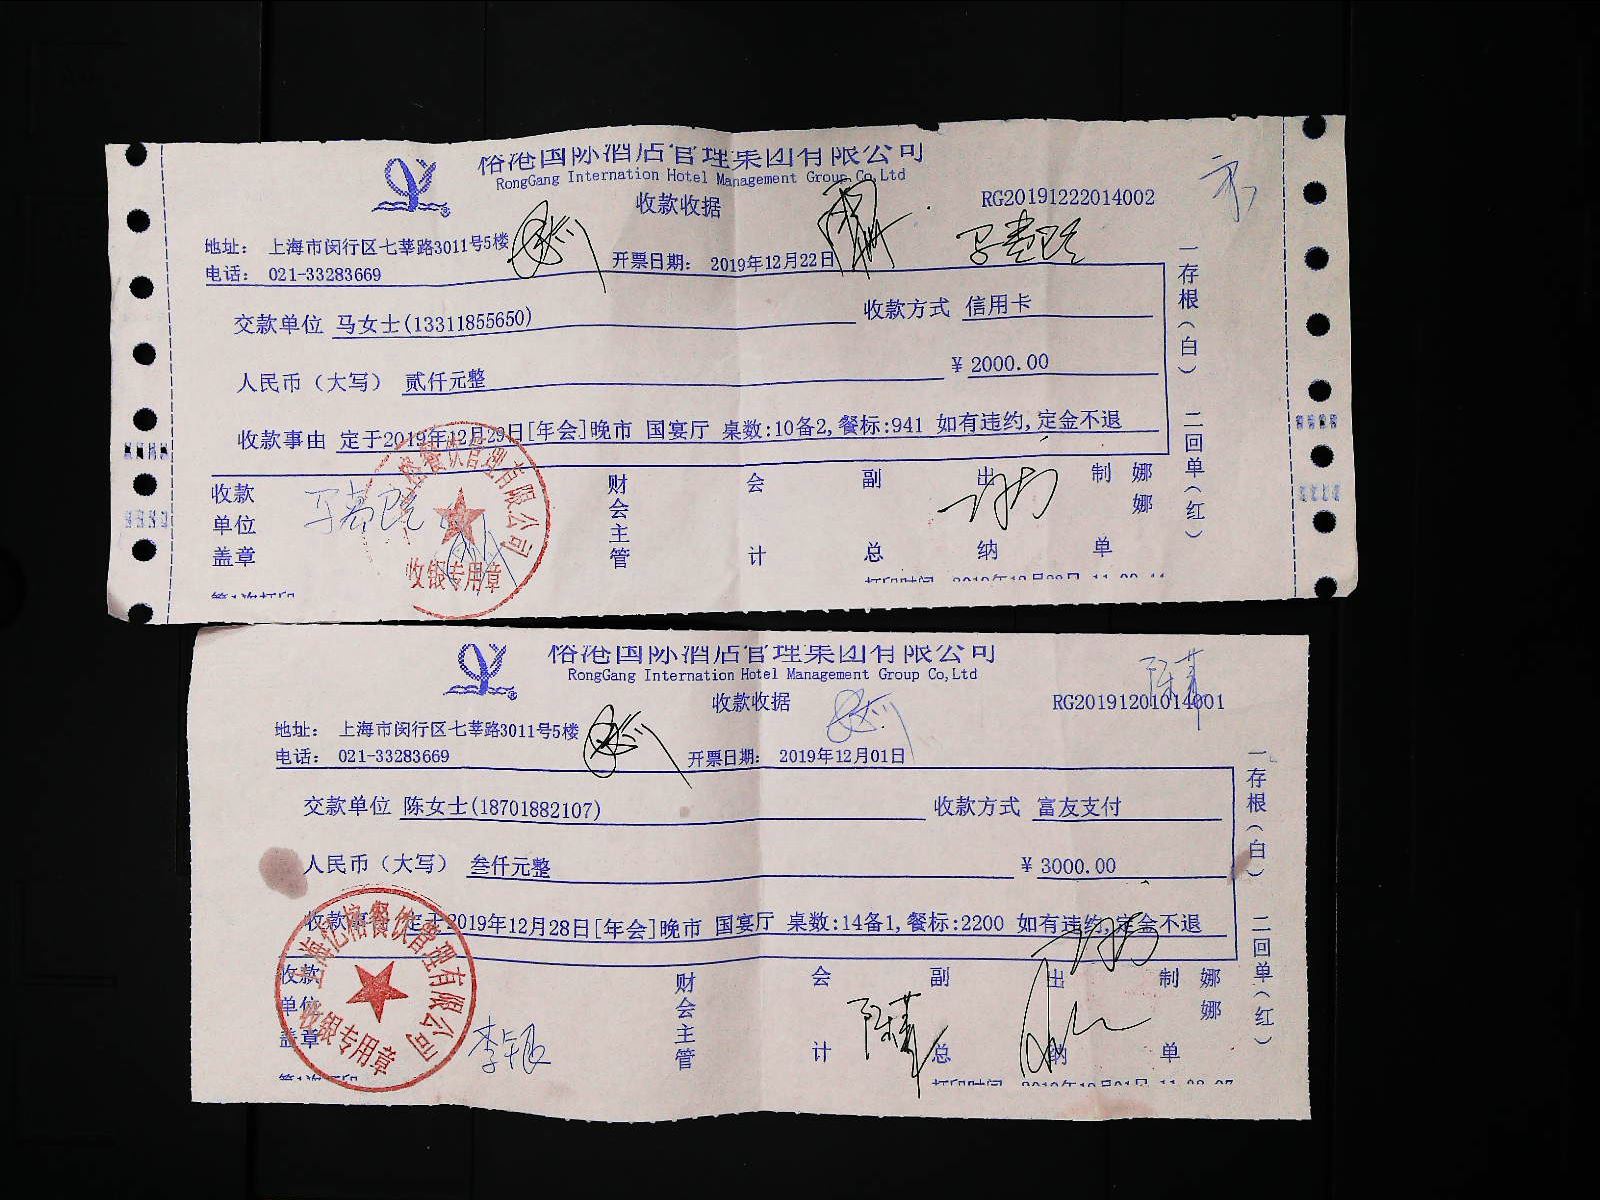 榕港国际酒店管理集团有限公司
RongGang International Hotel Management Group Co,Ltd
收款收据
RG20191222014002
地址： 上海市闵行区七莘路3011号5楼
电话： 021-33283669
开票日期： 2019年12月22日
交款单位 马女士(13311855650)
收款方式 信用卡
人民币（大写） 贰仟元整
¥ 2000.00
收款事由 定于2019年12月29日[年会]晚市 国宴厅 桌数:10备2,餐标:941 如有违约,定金不退
收款单位盖章
财会主管
会计
副总
出纳
制单
娜娜
一存根（白） 二回单（红）
榕餐饮管理有限公司
收银专用章
第1次打印
榕港国际酒店管理集团有限公司
RongGang International Hotel Management Group Co,Ltd
收款收据
RG20191201014001
地址： 上海市闵行区七莘路3011号5楼
电话： 021-33283669
开票日期： 2019年12月01日
交款单位 陈女士(18701882107)
收款方式 富友支付
人民币（大写） 叁仟元整
¥ 3000.00
收款事由 定于2019年12月28日[年会]晚市 国宴厅 桌数:14备1,餐标:2200 如有违约,定金不退
收款单位盖章
财会主管
会计
副总
出纳
制单
娜娜
一存根（白） 二回单（红）
收银专用章
李颖
第1次打印